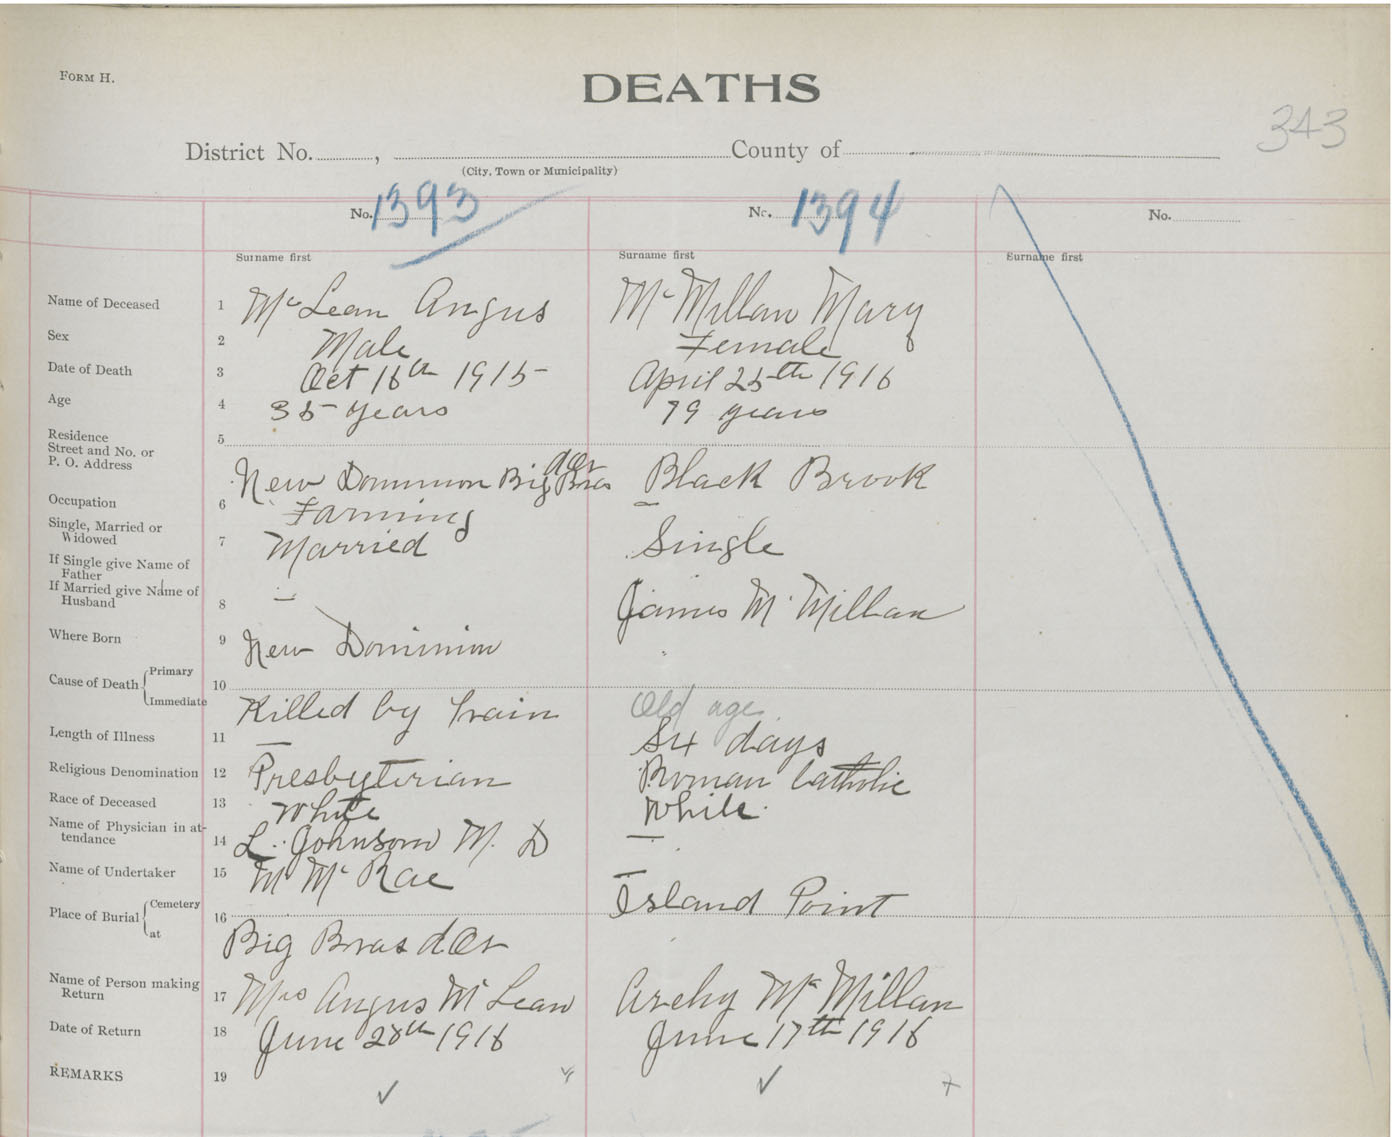 FORM H.
DEATHS
343
District No. , County of
(City, Town or Municipality)
No. 1393 No. 1394 No.
Surname first Surname first Surname first
Name of Deceased 1 McLean Angus McMillan Mary
Sex 2 Male Female
Date of Death 3 Oct 16th 1915 April 25th 1916
Age 4 35 years 79 years
Residence 5
Street and No. or
P. O. Address
New Dominion Big Bras dOr Black Brook
Occupation 6 Farming –
Single, Married or
Widowed 7 Married Single
If Single give Name of
Father
If Married give Name of
Husband 8 – James McMillan
Where Born 9 New Dominion
Cause of Death Primary 10
Immediate Killed by train Old age
Length of Illness 11 – Six days
Religious Denomination 12 Presbyterian Roman Catholic
Race of Deceased 13 White White
Name of Physician in at-
tendance 14 L. Johnson M. D –
Name of Undertaker 15 M McRae –
Place of Burial Cemetery 16 Island Point
at Big Bras dOr
Name of Person making
Return 17 Mrs Angus McLean Archy McMillan
Date of Return 18 June 28th 1916 June 17th 1916
REMARKS 19 ✓ ✓